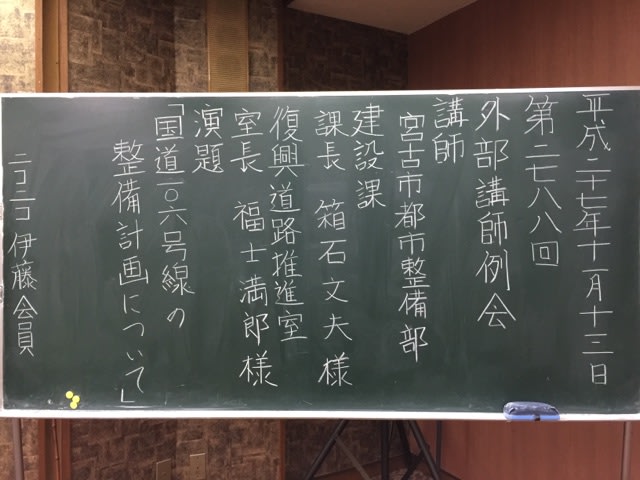 平成二十七年十一月十三日
第二七八八回
外部講師例会
講師
宮古市都市整備部
建設課
課長 箱石文夫様
復興道路推進室
室長 福士満郎様
演題
「国道一〇六号線の
整備計画について」
ニコニコ 伊藤会員